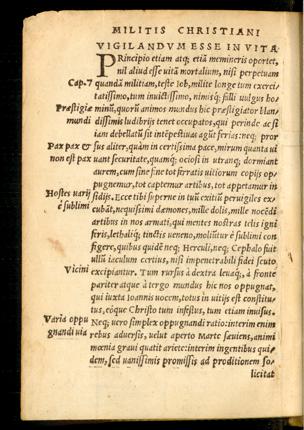 MILITIS CHRISTIANI
VIGILANDVM ESSE IN VITA
PRincipio etiam atq; etiã memineris oportet,
nil aliud esse uitã mortalium, nisi perpetuam
Cap.7 quandã militiam, teste Iob, milite longe tum exerci-
tatissimo, tum inuictissimo, nimiq; falli uulgus ho=
Præstigiæ minũ, quorũ animos mundus hic præstigiator blan-
mundi dissimis ludibrijs tenet occupatos, qui perinde ac si
iam debellatũ sit intẽpestiuas agũt ferias: neq; pror
Pax pax & sus aliter, quàm in certissima pace, mirum quanta ui
non est pax uant securitate, quamq; ociosi in utranq; dormiant
aurem, cum sine fine tot ferratis uitiorum copijs op=
pugnemur, tot captemur artibus, tot appetamur in
Hostes uarij sidijs. Ecce tibi superne in tuũ exitiũ peruigiles ex
è sublimi cubãt, nequissimi dæmones, mille dolis, mille nocẽdi
artibus in nos armati, qui mentes nostras telis igni
feris, lethaliq; tinctis ueneno, moliũtur è sublimi con
figere, quibus quidẽ neq; Herculi, neq; Cephalo fuit
ullũ iaculum certius, nisi impenetrabili fidei scuto
Vicini excipiantur. Tum rursus à dextra leuaq;, à fronte
pariter atque à tergo mundus hic nos oppugnat,
qui iuxta Ioannis uocem, totus in uitijs est constitu=
tus, eoque Christo tum infestus, tum etiam inuisus.
Varia oppu Neq; uero simplex oppugnandi ratio: interim enim
gnandi uia rebus aduersis, uelut aperto Marte sæuiens, animi
mœnia graui quatit ariete: interim ingentibus qui-
dem, sed uanissimis promissis ad proditionem so=
licitat